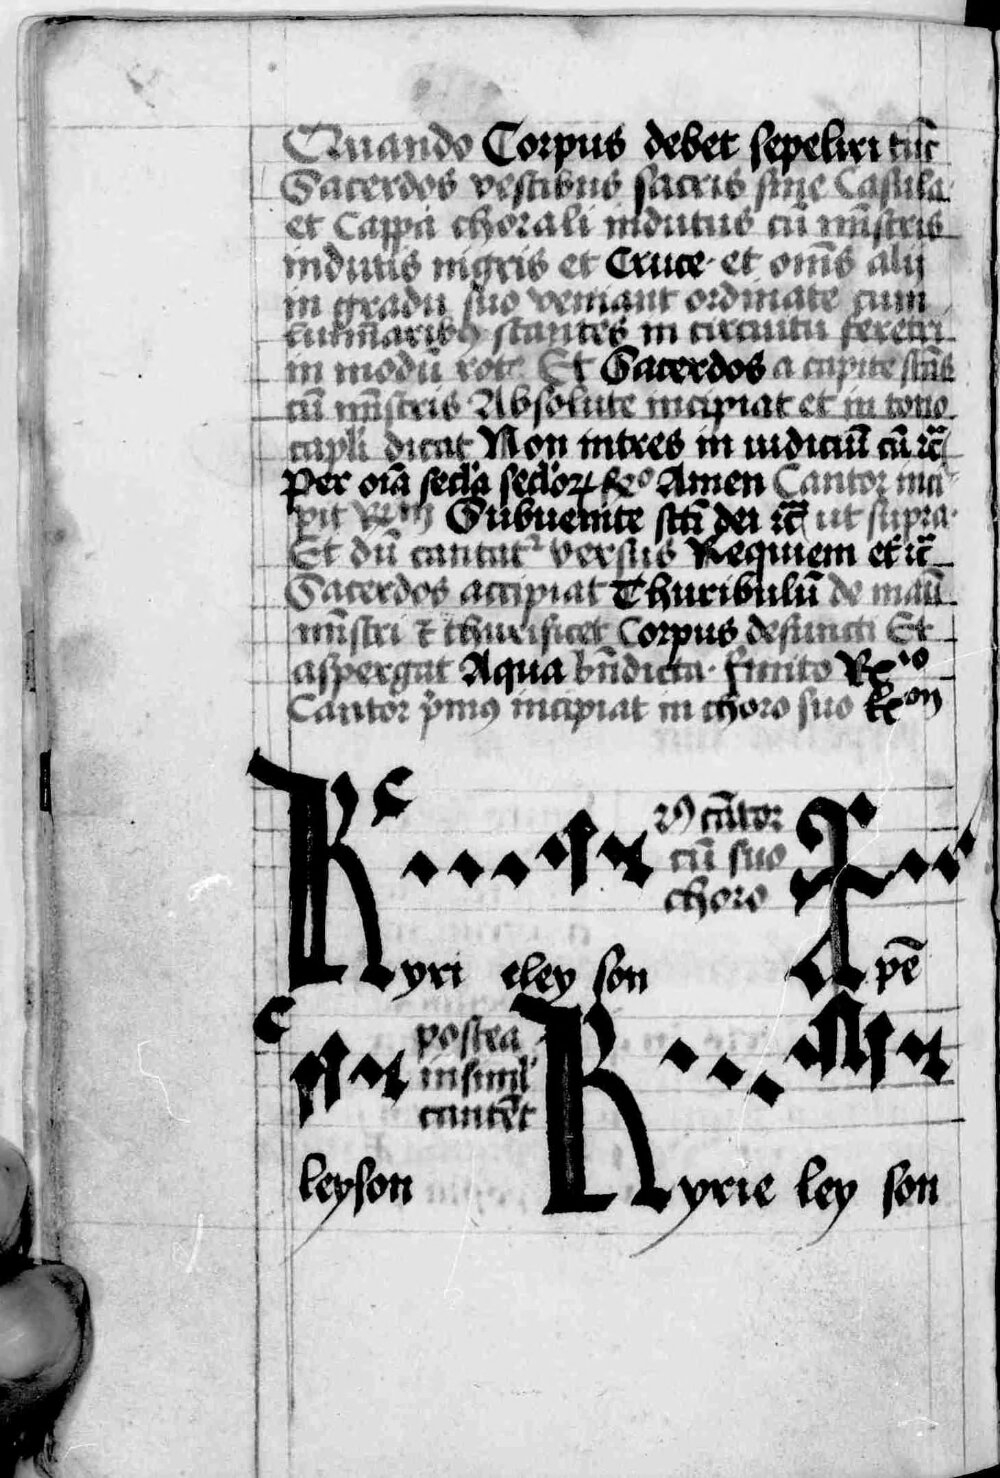 Quando Corpus debet sepeliri tūc
Sacerdos vestibus sacris sine Casula
et Cappa chorali indutus cū mīstris
indutis nigris et Cruce et om̄s alij
in gradu suo veniant ordinate cum
luminaribꝫ stantes in circuitu feretri
in modū rote Et Sacerdos a capite stās
cū mīstris Absolute incipiat et in tono
capli dicat Non intres in iudiciū cū rc̄
Per oīa secl'a secl'oꝝ Amen Cantor inci
pit Subuenite sc̄ti dei rc̄ ut supra
Et dū cantatʳ versus Requiem et rc̄
Sacerdos accipiat Thuribulū de manū
mīstri ⁊ thurificet Corpus defuncti Et
aspergat Aqua bn̄dicta finito Rx̄io
Cantor p̄mꝰ incipiat in choro suo kxon
2ꝰ cātor
cū suo
choro
Kyri eley son Xpē
postea
insimul
cantēt
leyson Kyrie ley son